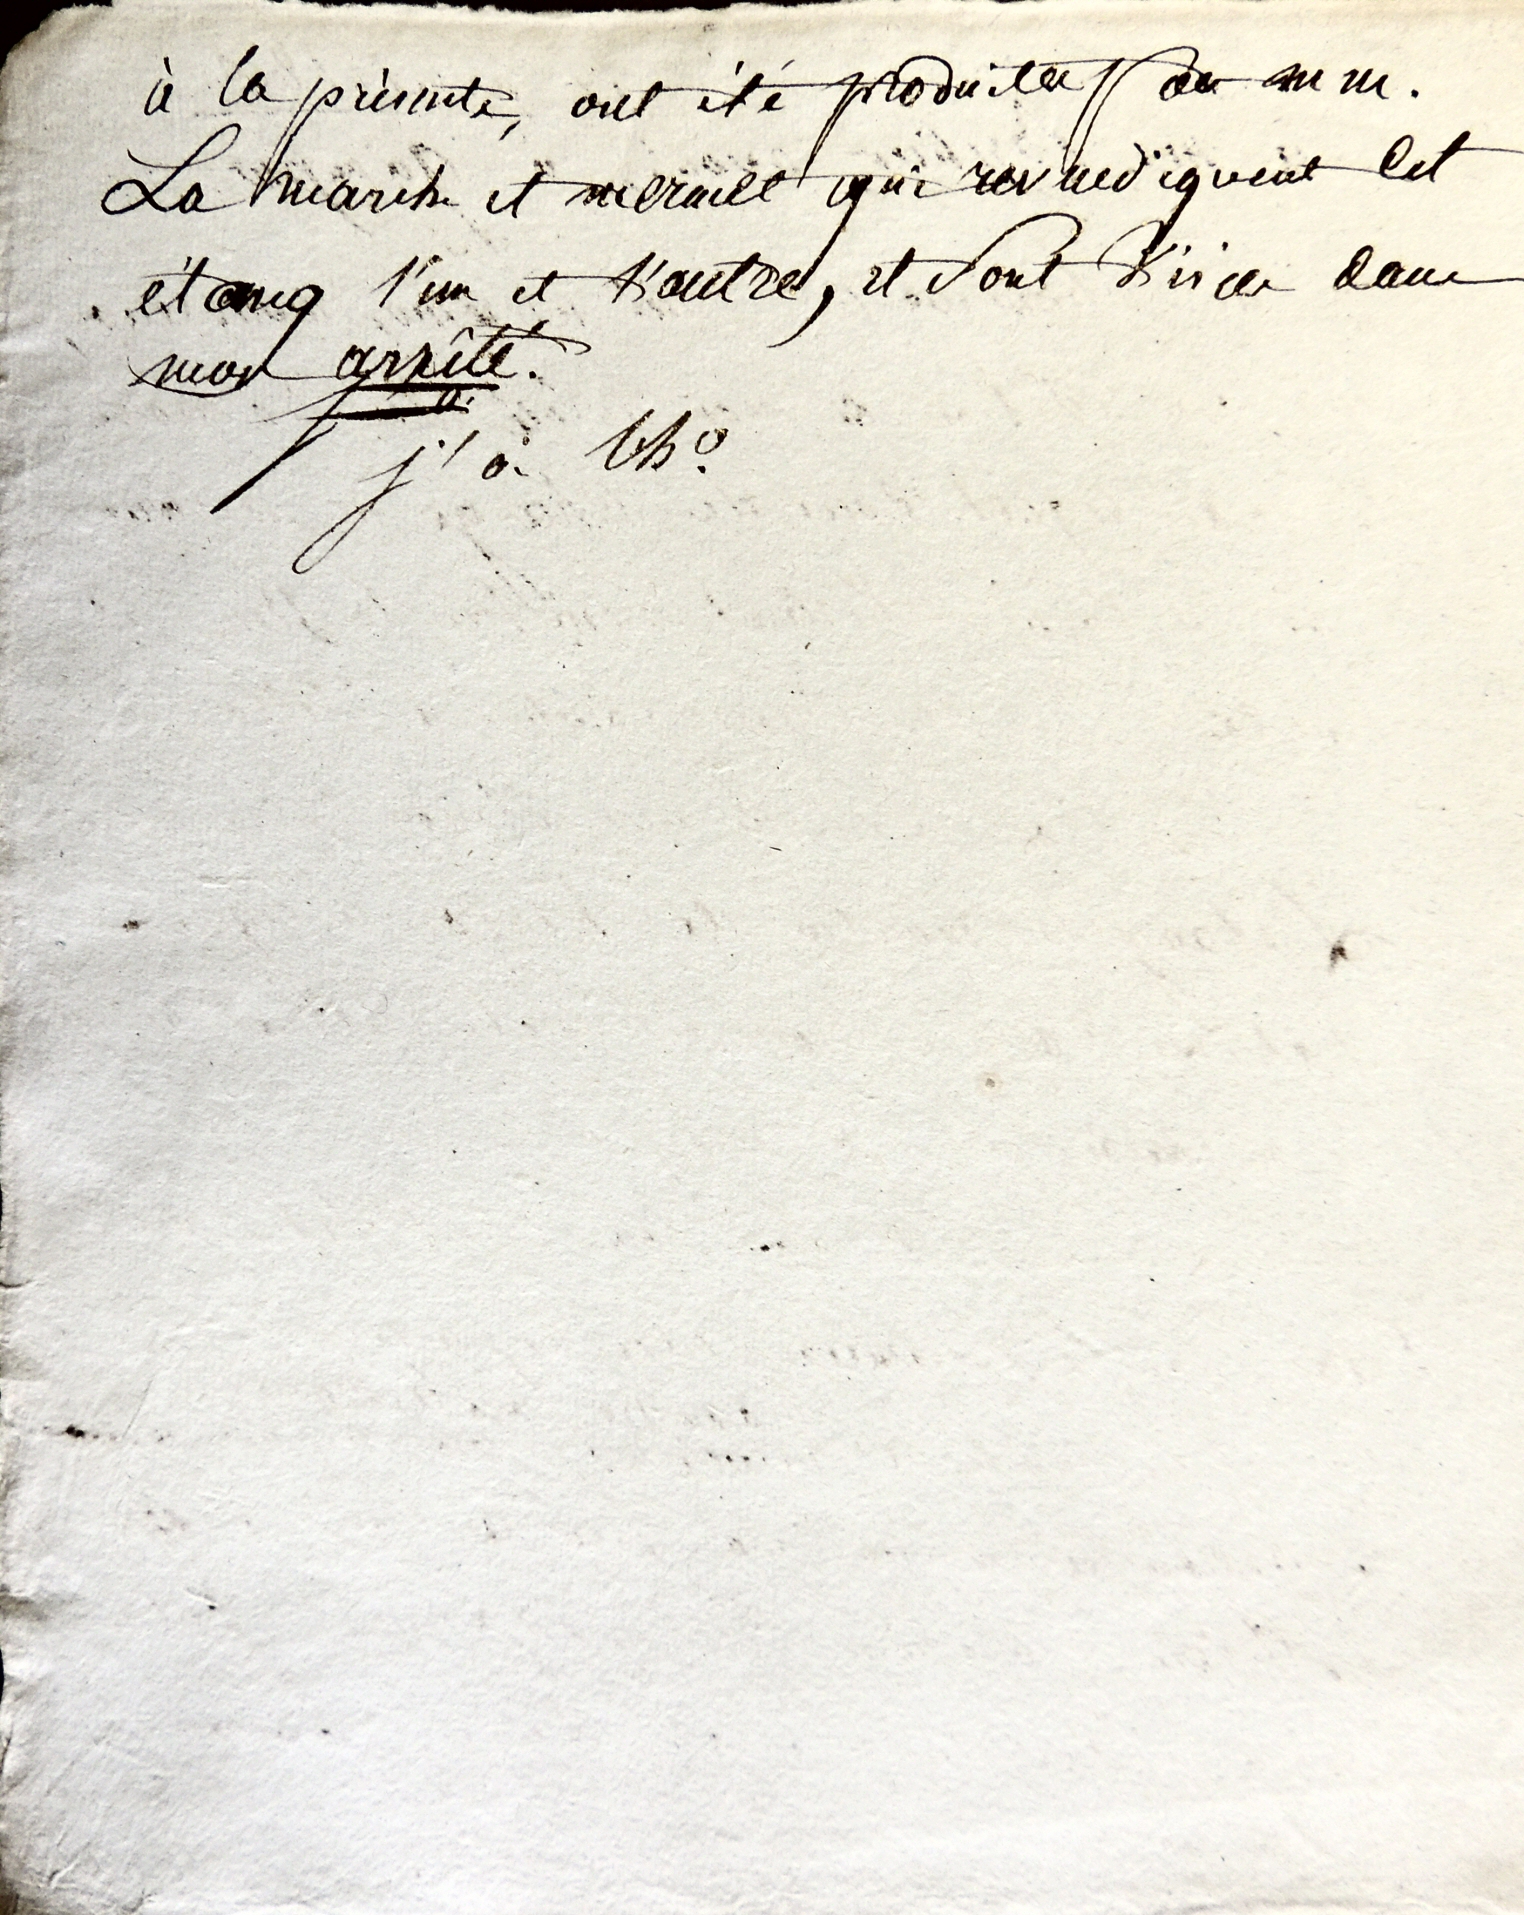 à la présente, ont été produites par m m.
La marche et merville qui revendiquent cet
étang l'un et l'autre, et sont visées dans
mon arrêté.
j'ai